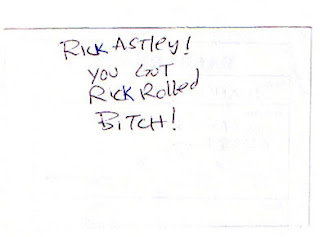 Rick Astley!
You Got
Rick Rolled
Bitch!